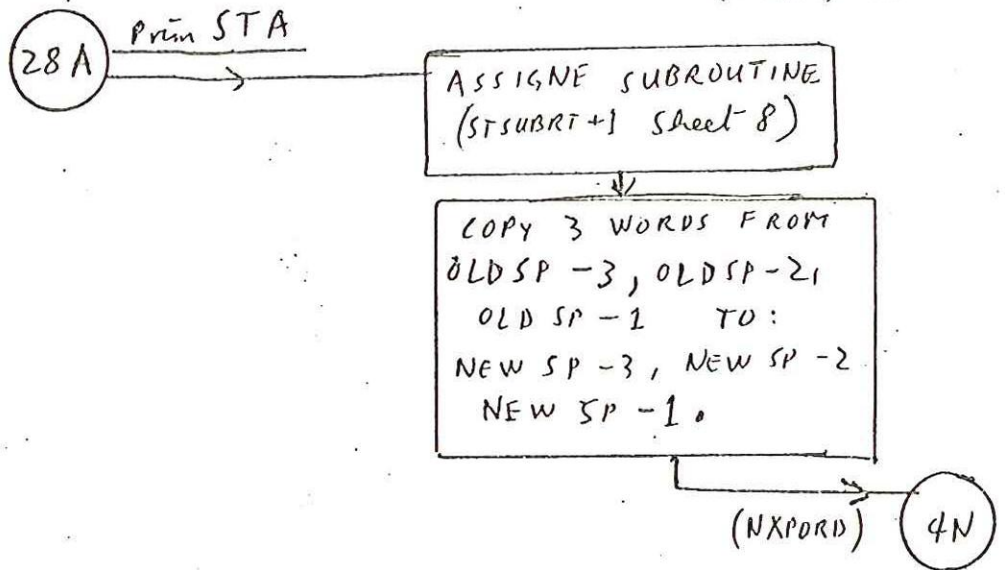 28A
Prim STA
ASSIGNE SUBROUTINE
(STSUBRT+1 Sheet 8)
COPY 3 WORDS FROM
OLDSP -3, OLDSP -2,
OLD SP -1 TO:
NEW SP -3, NEW SP -2
NEW SP -1.
(NXPORD)
4N